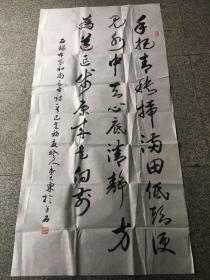 手把青秧插满田低头便
见水中天心底清静方
為道退步原来是向前
布袋和尚